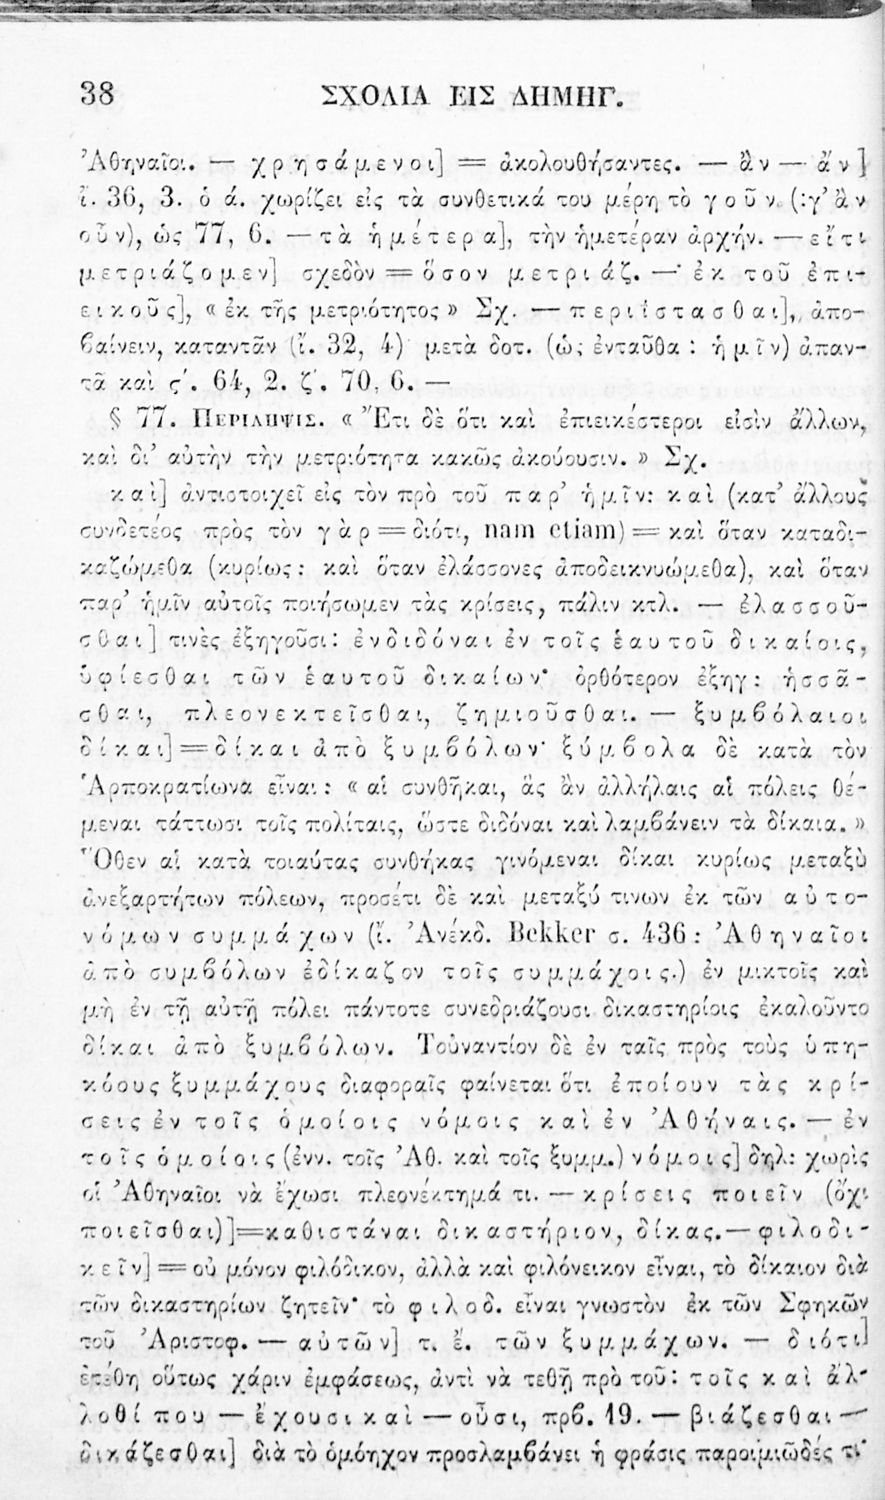 38 ΣΧΟΛΙΑ ΕΙΣ ΔΗΜΗΓ.
Ἀθηναῖοι. — χρησάμενοι] = ἀκολουθήσαντες. — ἂν — ἄν]
ἴ. 36, 3. ὁ ἀ. χωρίζει εἰς τὰ συνθετικά του μέρη τὸ γοῦν (:γ’ ἂν
οὖν), ὡς 77, 6. — τὰ ἡμέτερα], τὴν ἡμετέραν ἀρχήν. — εἴ τι
μετριάζομεν] σχεδὸν = ὅσον μετριάζ. — ἐκ τοῦ ἐπι-
εικοῦς], « ἐκ τῆς μετριότητος » Σχ. — περιΐστασθαι], ἀπο-
βαίνειν, καταντᾶν (ἴ. 32, 4) μετὰ δοτ. (ὡς ἐνταῦθα : ἡμῖν) ἀπαν-
τᾶ καὶ ς΄. 64, 2. ζ΄. 70, 6. —
§ 77. ΠΕΡΙΛΗΨΙΣ. « Ἔτι δὲ ὅτι καὶ ἐπιεικέστεροι εἰσὶν ἄλλων,
καὶ δι’ αὐτὴν τὴν μετριότητα κακῶς ἀκούουσιν. » Σχ.
καὶ] ἀντιστοιχεῖ εἰς τὸν πρὸ τοῦ παρ’ ἡμῖν: καὶ (κατ’ ἄλλους
συνδετέος πρὸς τὸν γὰρ = διότι, nam etiam) = καὶ ὅταν καταδι-
καζώμεθα (κυρίως : καὶ ὅταν ἐλάσσονες ἀποδεικνυώμεθα), καὶ ὅταν
παρ’ ἡμῖν αὐτοῖς ποιήσωμεν τὰς κρίσεις, πάλιν κτλ. — ἐλασσοῦ-
σθαι] τινὲς ἐξηγοῦσι: ἐνδιδόναι ἐν τοῖς ἑαυτοῦ δικαίοις,
ὑφίεσθαι τῶν ἑαυτοῦ δικαίων· ὀρθότερον ἐξηγ: ἡσσᾶ-
σθαι, πλεονεκτεῖσθαι, ζημιοῦσθαι. — ξυμβόλαιοι
δίκαι] = δίκαι ἀπὸ ξυμβόλων· ξύμβολα δὲ κατὰ τὸν
Ἁρποκρατίωνα εἶναι : « αἱ συνθῆκαι, ἃς ἂν ἀλλήλαις αἱ πόλεις θέ-
μεναι τάττωσι τοῖς πολίταις, ὥστε διδόναι καὶ λαμβάνειν τὰ δίκαια. »
Ὅθεν αἱ κατὰ τοιαύτας συνθήκας γινόμεναι δίκαι κυρίως μεταξὺ
ἀνεξαρτήτων πόλεων, προσέτι δὲ καὶ μεταξύ τινων ἐκ τῶν αὐτο-
νόμων συμμάχων (ἴ. Ἀνέκδ. Bekker σ. 436 : Ἀθηναῖοι
ἀπὸ συμβόλων ἐδίκαζον τοῖς συμμάχοις.) ἐν μικτοῖς καὶ
μὴ ἐν τῇ αὐτῇ πόλει πάντοτε συνεδριάζουσι δικαστηρίοις ἐκαλοῦντο
δίκαι ἀπὸ ξυμβόλων. Τοὐναντίον δὲ ἐν ταῖς πρὸς τοὺς ὑπη-
κόους ξυμμάχους διαφοραῖς φαίνεται ὅτι ἐποίουν τὰς κρί-
σεις ἐν τοῖς ὁμοίοις νόμοις καὶ ἐν Ἀθήναις. — ἐν
τοῖς ὁμοίοις (ἐνν. τοῖς Ἀθ. καὶ τοῖς ξυμμ.) νόμοις] δηλ: χωρὶς
οἱ Ἀθηναῖοι νὰ ἔχωσι πλεονέκτημά τι. — κρίσεις ποιεῖν (ὄχι
ποιεῖσθαι)]=καθιστάναι δικαστήριον, δίκας. — φιλοδι-
κεῖν] = οὐ μόνον φιλόδικον, ἀλλὰ καὶ φιλόνεικον εἶναι, τὸ δίκαιον διὰ
τῶν δικαστηρίων ζητεῖν· τὸ φιλοδ. εἶναι γνωστὸν ἐκ τῶν Σφηκῶν
τοῦ Ἀριστοφ. — αὐτῶν] τ. ἔ. τῶν ξυμμάχων. — διότι]
ἐτέθη οὕτως χάριν ἐμφάσεως, ἀντὶ νὰ τεθῇ πρὸ τοῦ: τοῖς καὶ ἄλ-
λοθί που — ἔχουσι καὶ — οὖσι, πρβ. 19. — βιάζεσθαι —
δικάζεσθαι] διὰ τὸ ὁμόηχον προσλαμβάνει ἡ φράσις παροιμιῶδές τι·